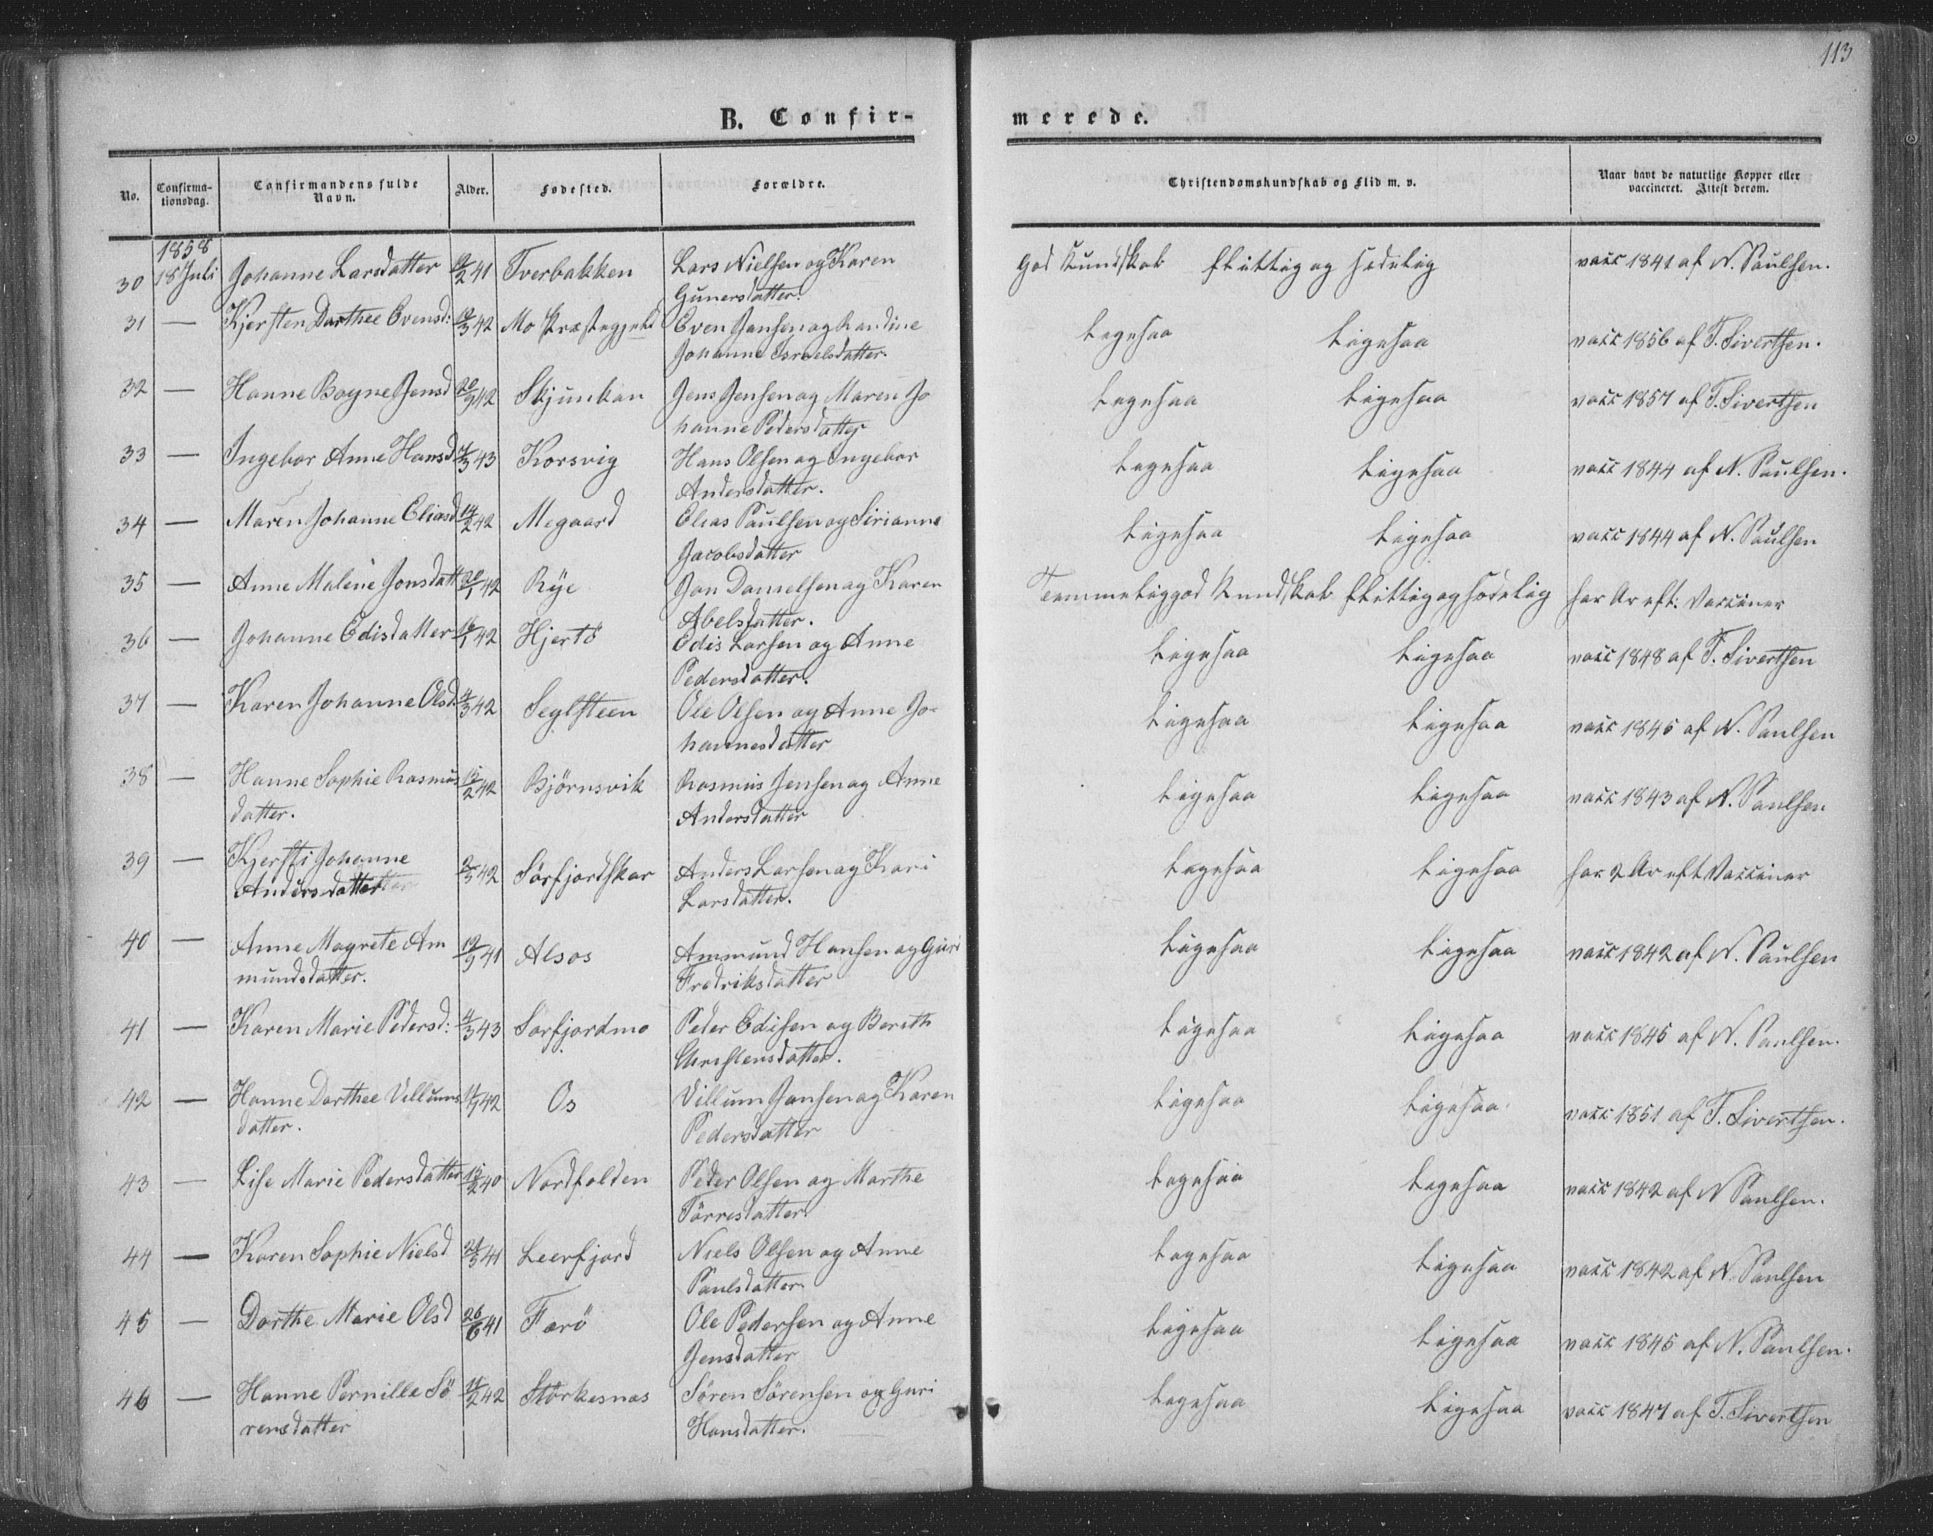 113
B. Confir-
merede.
No.
Confirma-
tionsdag.
Confirmandens fulde
Navn.
Alder.
Fødested.
Forældre.
Christendomskundskab og Flid m. v.
Naar havt de naturlige Kopper eller
vaccineret. Attest derom.
1858
30 18 Juli Johanne Larsdatter 41 Tverbakken Lars Nielsen og Karen God Kundskab flittig og sædelig vacc 1841 af N. Paulsen.
Gunersdatter.
31 — Kjersten Dorthee Evensd: 42 Mo Præstegjeld Even Jansen og Randine Ligesaa Ligesaa vacc 1856 af T. Sivertsen.
Johanne Israelsdatter.
32 — Hanne Boyne Jensd 42 Skjunkan Jens Jensen og Maren Jo Ligesaa Ligesaa vacc 1857 af T. Sivertsen
hanne Pedersdatter
33 — Ingebor Anne Hansd 43 Korsvig Hans Olsen og Ingebor Ligesaa Ligesaa vacc 1844 af N. Paulsen.
Andersdatter.
34 — Maren Johanne Eliasd 14/2 42 Megaard Elias Paulsen og Sirianne Ligesaa Ligesaa vacc 1844 af N. Paulsen
Jacobsdatter
35 — Anne Malene Jonsdatt 20/1 42 Røe Jon Danielsen og Karen Temmelig god Kundskab flittig og sædelig har Ar eft: Vacciner
Abelsdatter.
36 — Johanne Edisdatter 42 Hjertø Edis Larsen og Anne Ligesaa Ligesaa vacc 1848 af T. Sivertsen
Pedersdatter.
37 — Karen Johanne Olsd 42 Seglsteen Ole Olsen og Anne Jo- Ligesaa Ligesaa vacc 1845 af N. Paulsen
hannesdatter
38 — Hanne Sophie Rasmus 42 Bjørnsvik Rasmus Jensen og Anne Ligesaa Ligesaa vacc 1843 af N. Paulsen
datter. Andersdatter
39 — Kjersti Johanne
Andersdatter 42 Sørfjordskar Anders Larsen og Kari Ligesaa Ligesaa har 2 Ar eft Vacciner
Larsdatter.
40 — Anne Magrete Am 19/9 41 Alsos Ammund Hansen og Guri Ligesaa Ligesaa vacc 1842 af N. Paulsen
mundsdatter. Fredriksdatter
41 — Karen Marie Pedersd: 4/3 43 Sørfjordmo Peder Edisen og Berith Ligesaa Ligesaa vacc 1845 af N. Paulsen.
Christensdatter.
42 — Hanne Dorthee Villums 42 Os Villum Jansen og Karen Ligesaa Ligesaa vacc 1851 af T. Sivertsen.
datter. Pedersdatter
43 — Lise Marie Pedersdatter 40 Nordfolden Peder Olsen og Marthe Ligesaa Ligesaa vacc 1842 af N Paulsen.
Tørresdatter.
44 — Karen Sophie Nielsd 41 Leerfjord Niels Olsen og Anne Ligesaa Ligesaa vacc 1842 af N. Paulsen
Paulsdatter
45 — Dorthe Marie Olsd 26/6 41 Færø Ole Pedersen og Anne Ligesaa Ligesaa vacc 1845 af N. Paulsen.
Jensdatter
46 — Hanne Pernilla Sö 42 Størkesnæs Søren Sørensen og Guri Ligesaa Ligesaa vacc 1847 af T. Sivertsen
rensdatter Hansdatter.